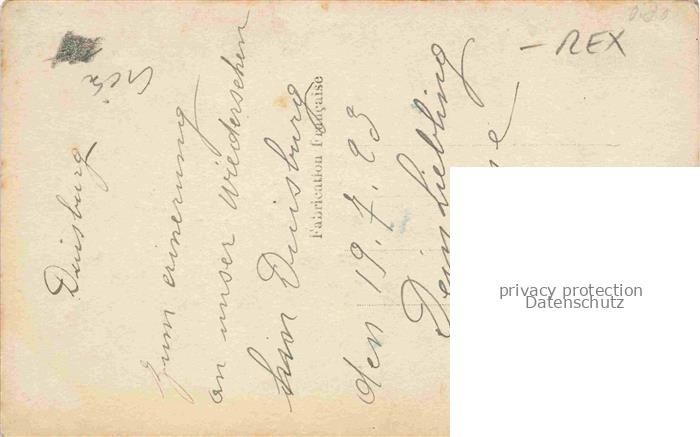 Duisburg
zum erinerung
an unser Wiedersehen
him Duisburg
den 19.7.23
Dein Liebling
Fabrication Française
- REX
privacy protection
Datenschutz